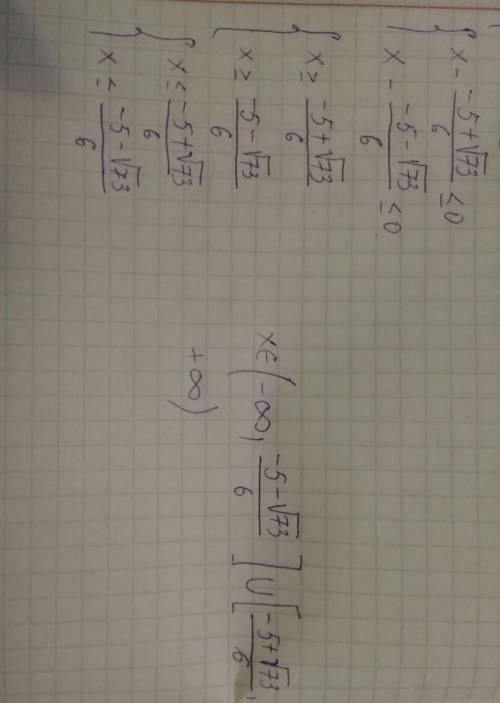 { x - (-5+√73)/6 ≤ 0
{ x - (-5-√73)/6 ≤ 0
{ x ≥ (-5+√73)/6
{ x ≥ (-5-√73)/6
{ x ≤ (-5+√73)/6
{ x ≤ (-5-√73)/6
x∈(-∞, (-5-√73)/6] ∪ [(-5+√73)/6,
+∞)